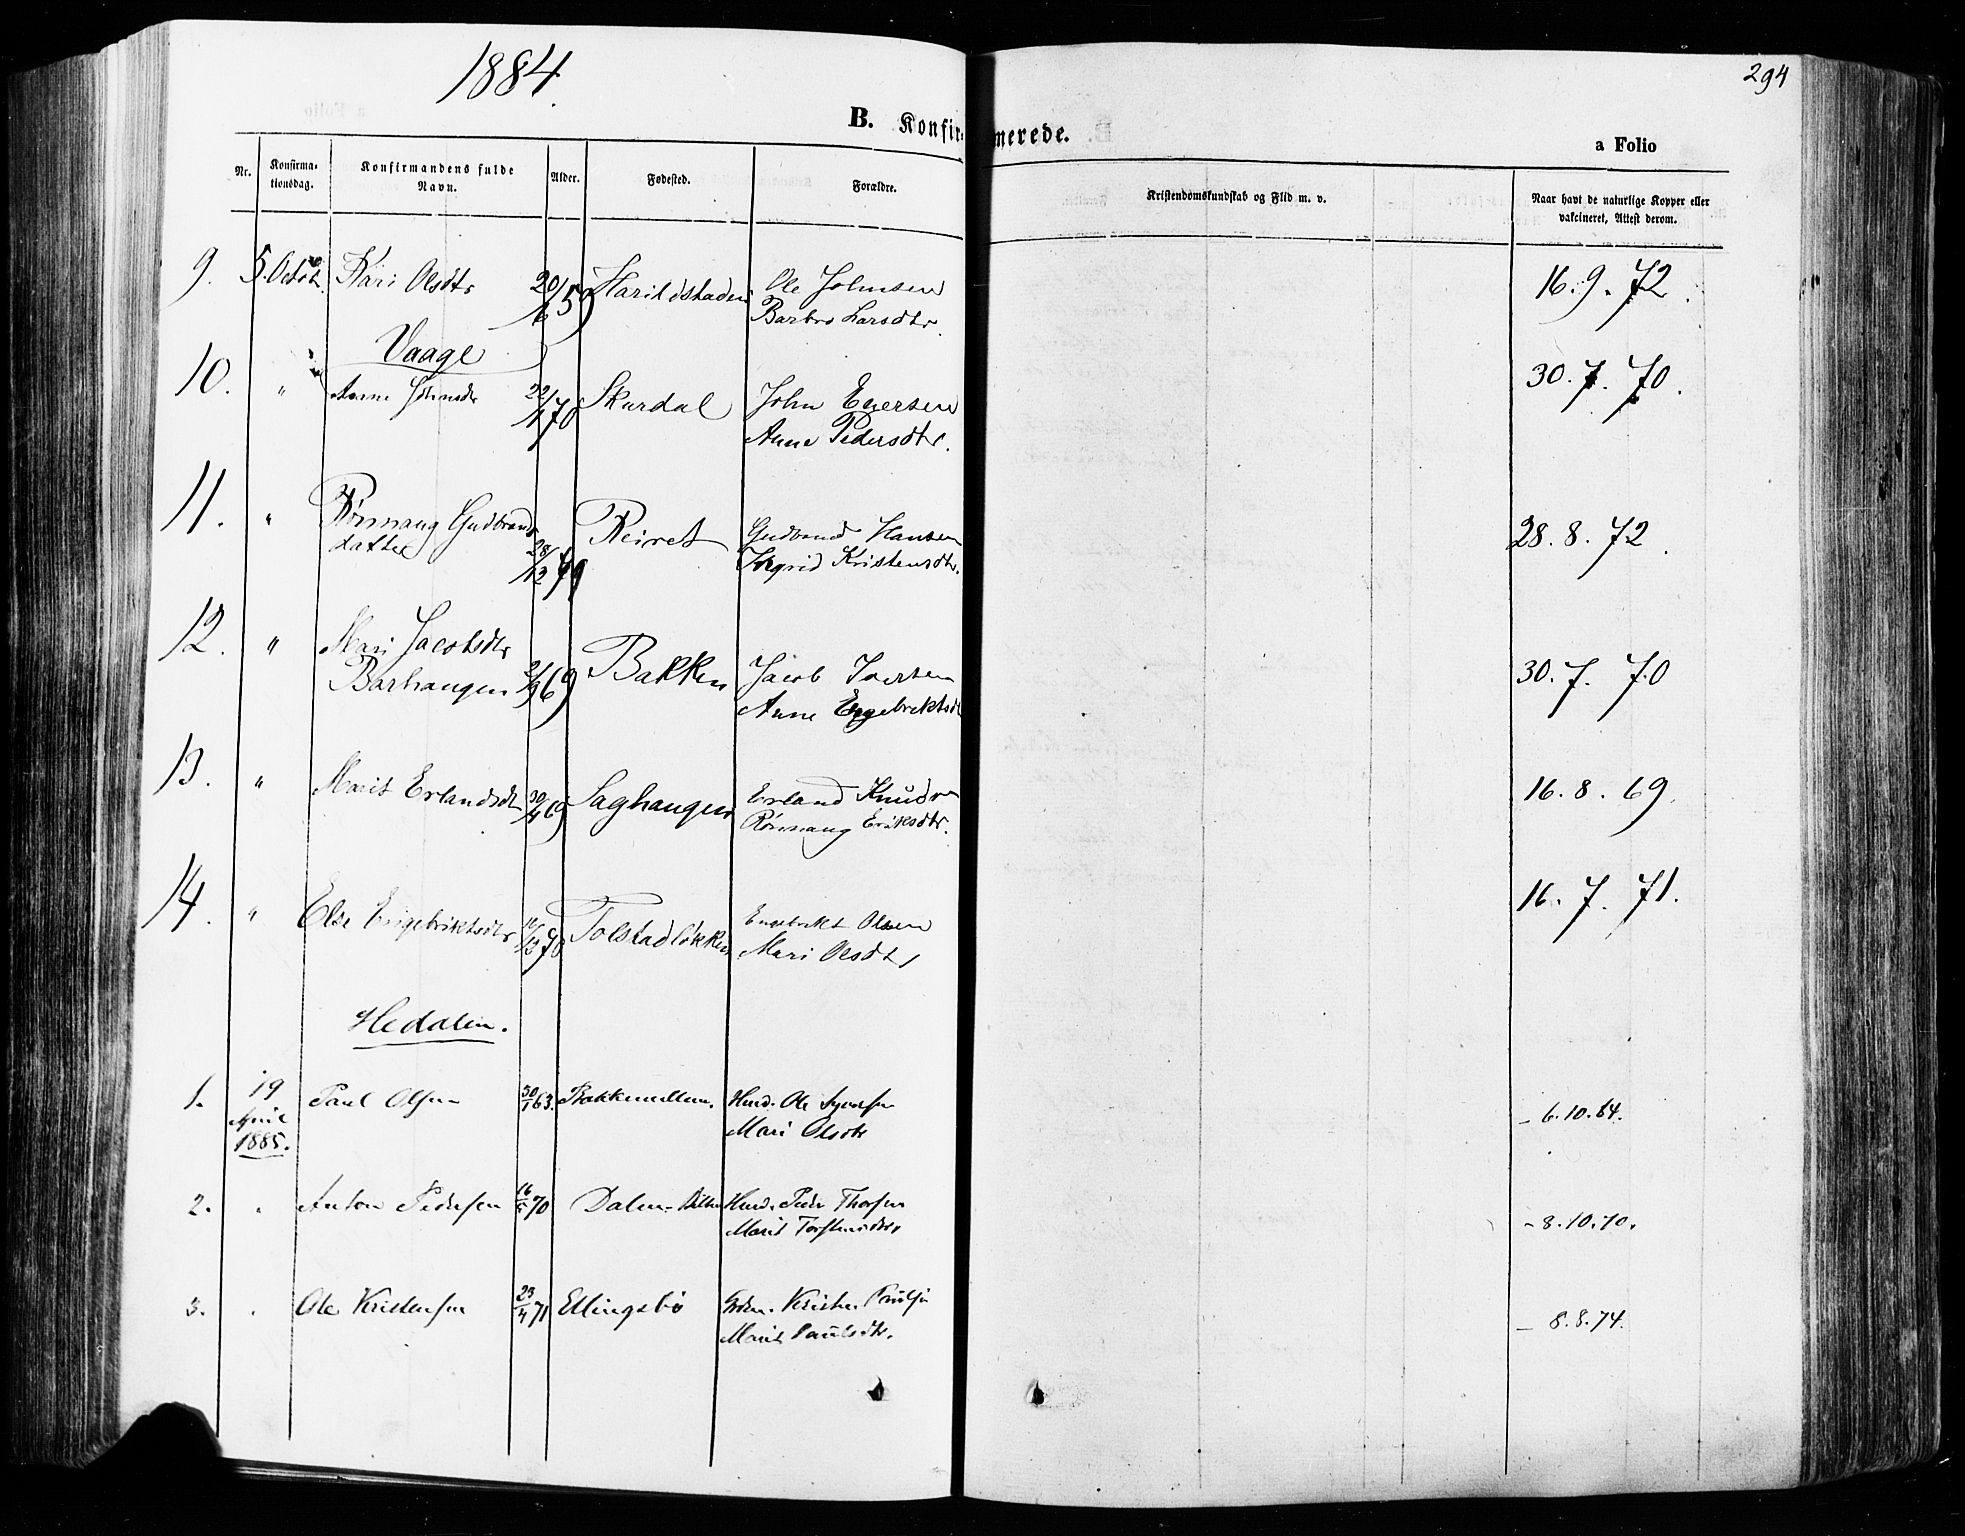 1884.
294
B. Konfirmerede.
a Folio
Nr. Konfirmationsdag. Konfirmandens fulde Navn. Alder. Fødested. Forældre. Kristendomskundskab og Flid m. v. Naar havt de naturlige Kopper eller vakcineret, Attest derom.
9. 5. Octob. Kari Olsdtr 20/6 59 Harildstaden Ole Johnsen 16. 9. 72.
Barbro Larsdtr.
Vaage
10. " Anne Johnsdr 22/1 70 Skurdal John Enersen 30. 7. 70.
Anne Pedersdtr.
11. " Rønnaug Gudbrands Reiret Gudbrand Hansen 28. 8. 72.
datter 28/12 Ingrid Kristensdtr.
12. " Mari Jacobsdtr Bakken Jacob Iversen 30. 7. 70
Barhaugen 2/9 69 Anne Engebrektsd
13. " Marit Erlandsdt 30/4 69 Saghaugen Erland Knuds 16. 8. 69.
Rønnaug Eriksdtr.
14. " Else Engebriktsdtr 70 Tolstadløkken Engebrikt Olsen 16. 7. 71.
Mari Olsdtr
Hedalen.
1. 19 Paul Olsen 30/1 63. Bakkemellem. Husd. Ole Syversen - 6. 10. 64.
April Mari Olsdtr
1885.
2. " Anton Pedersen 16/5 70 Dalen Husd. Peder Thorsen - 8. 10. 70.
Marit Torstensdtr
3. " Ole Kristensen 23/4 71 Ellingsbø Kristen Paulsen - 8. 8. 74.
Marit Paulsdtr.